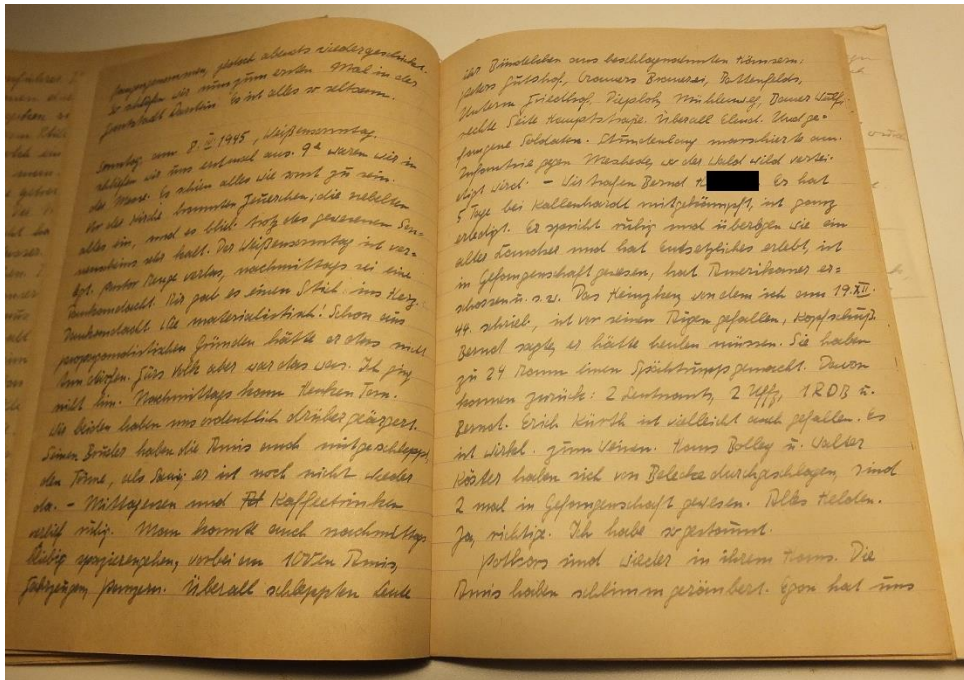 jedoch abends wiedergeschickt.
So schlafen wir nun zum ersten Mal in der
Es ist alles so seltsam.
Sonntag am 8. IV 1945, Weißensonntag.
schliefen wir uns erstmal aus. 9ª waren wir in
der Messe. Es schien alles wie sonst zu sein.
Vor der Kirche brannten Feuerchen, die nebelten
alles ein, und es blieb trotz des gewesenen Son-
nenscheins sehr kalt. Der Weißensonntag ist ver-
legt. Pastor verlas, nachmittags sei eine
Dankandacht. Mir gab es einen Stich ins Herz.
Dankandacht! Wie materialistisch! Schon aus
propagandistischen Gründen hätte er das nicht
tun dürfen. Fürs Volk aber war das was. Ich ging
nicht hin. Nachmittags kam Tom.
Wir beiden haben uns ordentlich drüber geärgert.
Seinen Bruder haben die Amis auch mitgeschleppt,
den Tönne, als er ist noch nicht wieder
da. – Mittagessen und Kaffeetrinken
verlief ruhig. Man konnte auch nachmittags
spazierengehen, vorbei an 100en Amis,
Fahrzeugen, Panzern. Überall schleppten Leute
ihre aus beschlagnahmten Häusern:
Gutshof, Cramers Brauerei,
Unterm Friedhof, Mühlenweg, Bauer
rechte Seite Hauptstraße. Überall Elend. Und ge-
fangene Soldaten. Stundenlang marschierte am.
Infanterie gegen Meschede, wo der Wald wild vertei-
digt wird. – Wir trafen Bernd Er hat
5 Tage bei Kallenhardt mitgekämpft, ist ganz
erledigt. Er spricht ruhig und überlegen wie ein
alter Landser und hat Entsetzliches erlebt, ist
in Gefangenschaft gewesen, hat Amerikaner er-
schossen u. s. w. Das von dem ich am 19. XII.
44. schrieb, ist vor seinen Augen gefallen, Kopfschuß.
Bernd sagte, er hätte heulen müssen. Sie haben
zu 24 Mann einen Spähtrupp gemacht. Davon
kamen zurück: 2 Leutnants, 2 Uffz, 1 ROB u.
Bernd. Erich ist vielleicht auch gefallen. Es
ist wirkl. zum Weinen. Hans u. Walter
Köster haben sich von Belecke durchgeschlagen, sind
2 mal in Gefangenschaft gewesen. Alles Helden.
Ja, richtige. Ich habe so gestaunt.
sind wieder in ihrem Haus. Die
Amis haben schlimm geräubert. Egon hat uns